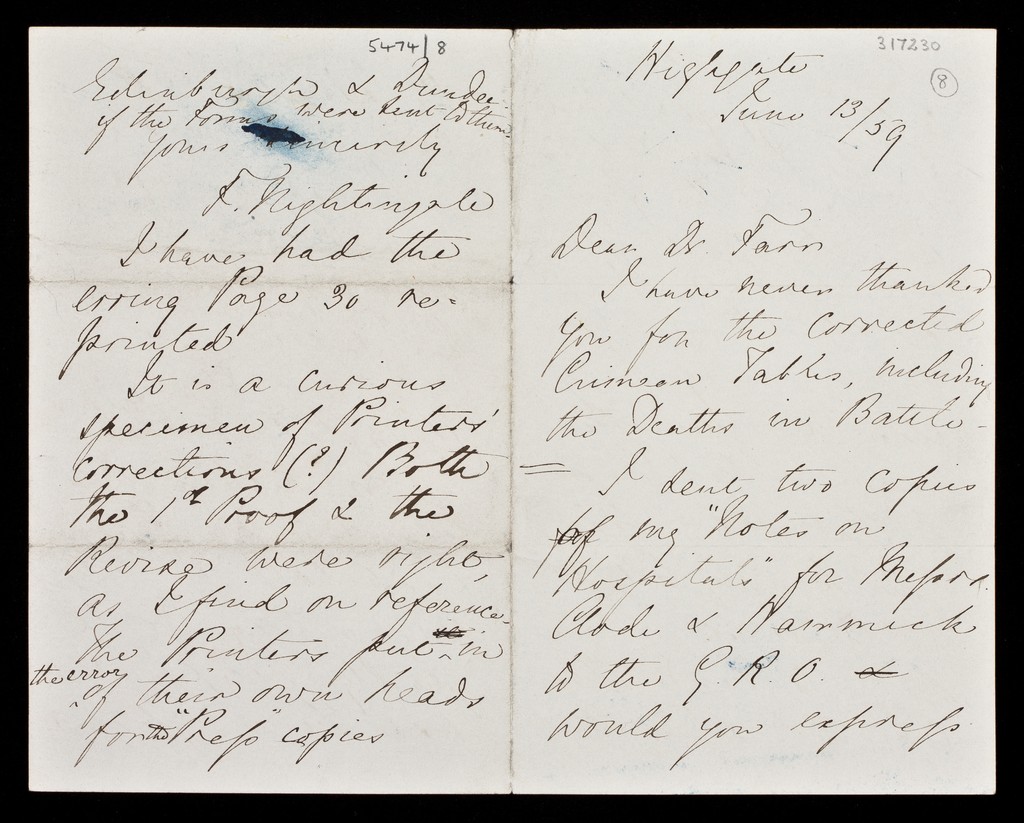 5474/8
Edinburgh & Dundee
if the Forms were sent to them.
Yours sincerely
F. Nightingale
I have had the
erring Page 30 re-
printed
It is a curious
specimen of Printers'
corrections (?) Both
the 1st Proof & the
Revise were right,
as I find on reference.
The Printers put in
the error
of their own heads
for the "Press" copies
317230
8
Highgate
June 13/59
Dear Dr. Farr
I have never thanked
you for the corrected
Crimean Tables, including
the Deaths in Battle -
I sent two copies
of my "Notes on
Hospitals" for Messrs.
Clode & Hammick
to the G. R. O. &
would you express